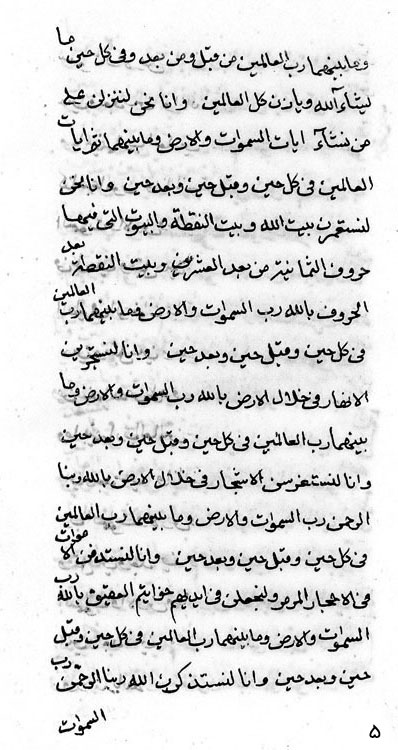 وما بينهما رب العالمين من قبل ومن بعد وفي كل حين ما
يشاء الله وياذن كل العالمين وانا نحن لننزلن على
من نشاء ايات السموات والارض وما بينهما ثم ايات
العالمين في كل حين وقبل حين وبعد حين وانا نحن
لنستعمرن بيت الله وبيت النقطة والبيوت التي فيها
حروف الثمانية من بعد العشرين وبيت النقطة بعد
الحروف بالله رب السموات والارض وما بينهما رب العالمين
في كل حين وقبل حين وبعد حين وانا لنستجرين
الانهار في خلال الارض بالله رب السموات والارض وما
بينهما رب العالمين في كل حين وقبل حين وبعد حين
وانا لنستغرسن الاشجار في خلال الارض بالله ربنا
الرحمن رب السموات والارض وما بينهما رب العالمين
في كل حين وقبل حين وبعد حين وانا لنستدفن الاموات
في الاحجار المرمر ولنجعلن في ايديهم خواتيم العقيق بالله رب
السموات والارض وما بينهما رب العالمين في كل حين وقبل
حين وبعد حين وانا لنستذكرن الله ربنا الرحمن رب
السموات
۵